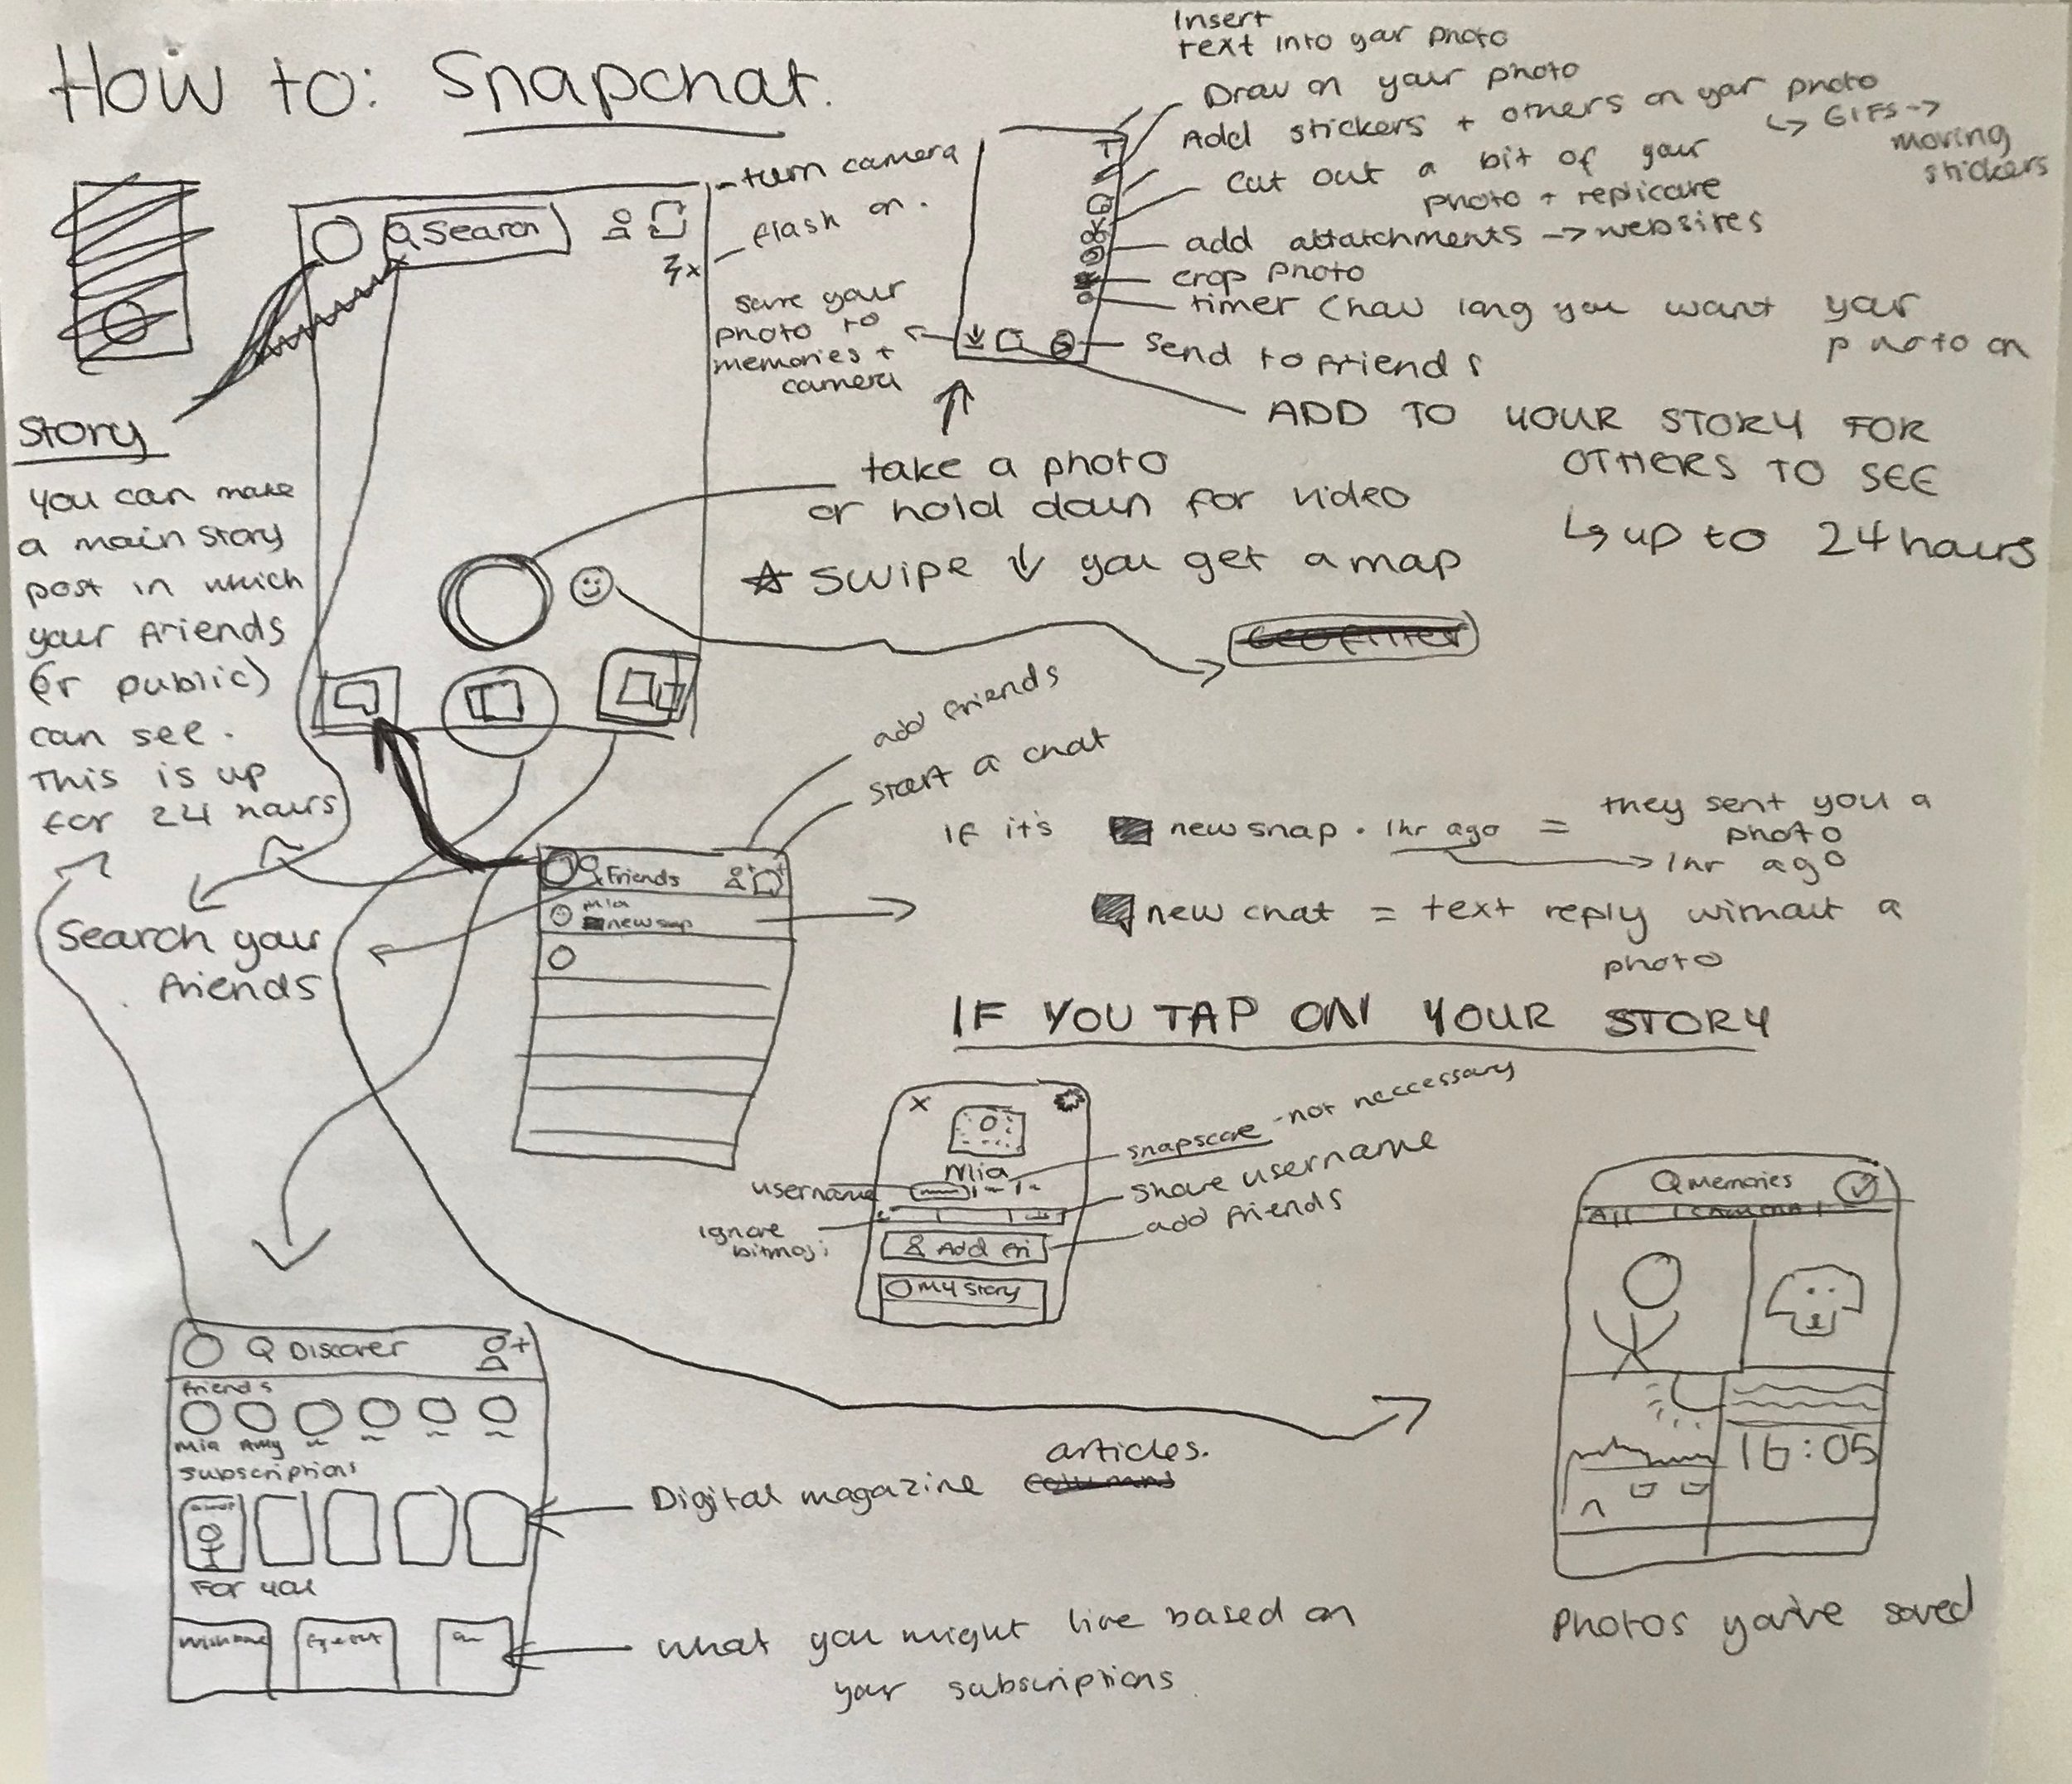 How to: Snapchat.
Insert
text into your photo
Draw on your photo
Add stickers + others on your photo
↳ GIFS →
moving
stickers
Cut out a bit of your
photo + replicate
add attatchments → websites
crop photo
timer (how long you want your
photo on
send to friends
ADD TO YOUR STORY FOR
OTHERS TO SEE
↳ up to 24 hours
T
turn camera
flash on.
save your
photo to
memories +
camera
Search
x
take a photo
or hold down for video
☆ SWIPE ↓ you get a map
Geofilter
Story
You can make
a main story
post in which
your friends
(or public)
can see.
This is up
for 24 hours
Search your
friends
add friends
start a chat
Friends
Mia
new snap
If it's new snap · 1hr ago = they sent you a
photo
→ 1hr ago
new chat = text reply without a
photo
IF YOU TAP ON YOUR STORY
x
Mia
username
snapscore - not neccessary
share username
add friends
ignore
bitmoji
Add fri
My story
Memories
All
Photos you've saved
16:05
Discover
+
friends
Mia Amy
subscriptions
For you
Digital magazine articles.
columns
what you might like based on
your subscriptions.